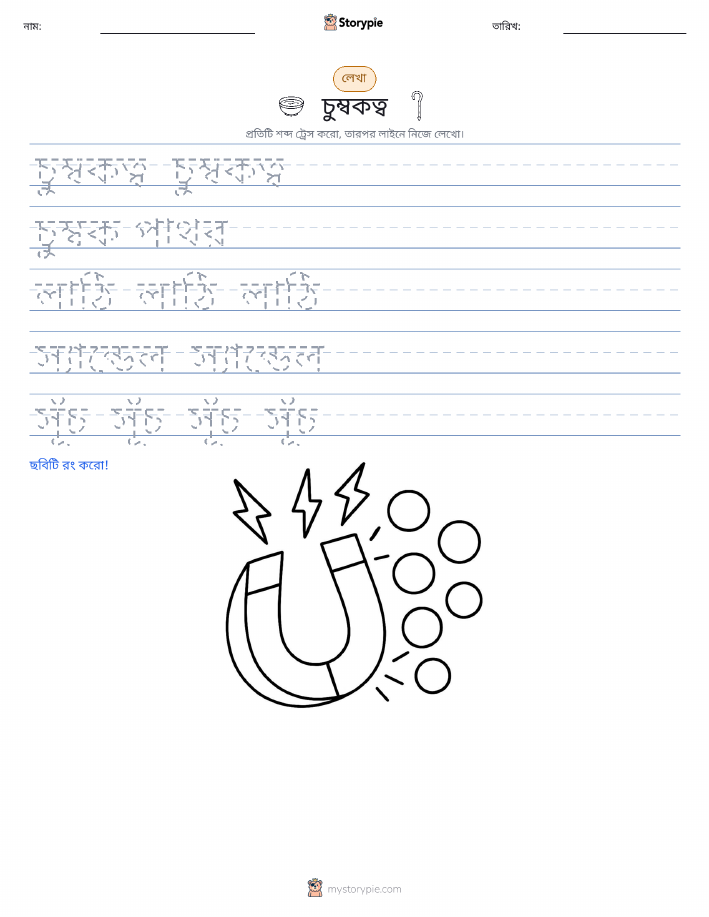 নাম: Storypie তারিখ:
লেখা
চুম্বকত্ব
প্রতিটি শব্দ ট্রেস করো, তারপর লাইনে নিজে লেখো।
চুম্বকত্ব চুম্বকত্ব
চুম্বক পাথর
লাঠি লাঠি লাঠি
স্যান্ডেল স্যান্ডেল
সূঁচ সূঁচ সূঁচ সূঁচ
ছবিটি রং করো!
mystorypie.com